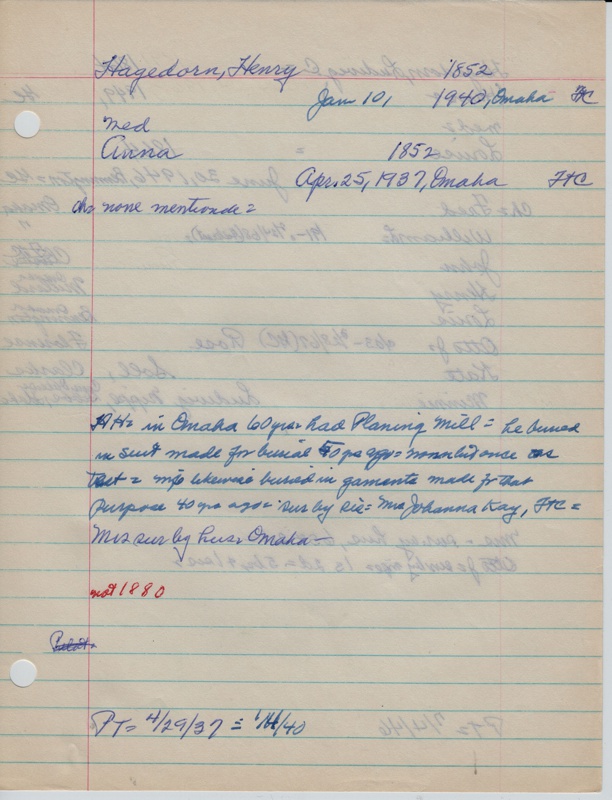 Hagedorn, Henry 1852
Jan 10, 1940, Omaha FtC
med
Anna = 1852
Apr. 25, 1937, Omaha FtC
ch= none mentionde =
HH= in Omaha 60 yrs= had Planing Mill = he buried
in suit made for burial 40 yrs ago = once as
test = wife likewise buried in gaments made for that
purpose 40 yrs ago = sur by sis= Mrs Johanna Kay, FtC =
Mrs sur by hus= Omaha —
not 1880
PT= 4/29/37 = /40